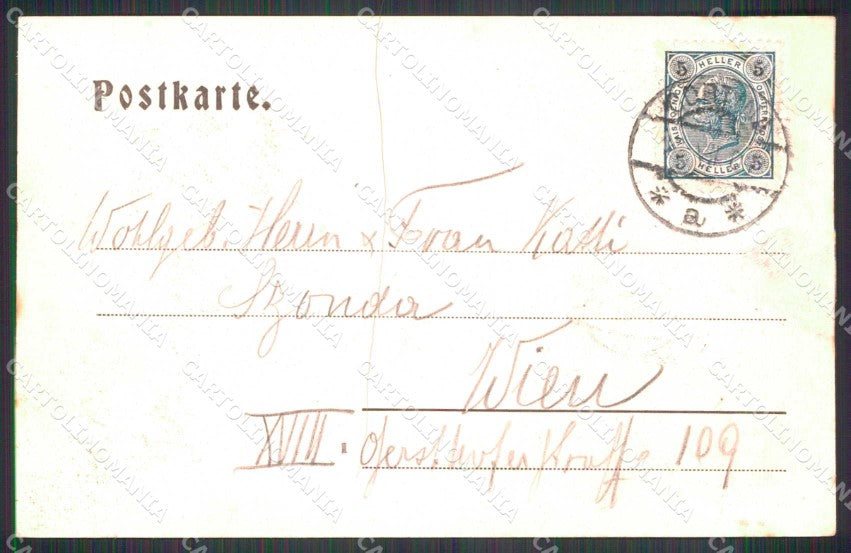 Postkarte.
5 HELLER 5
5 HELLER 5
a
Wohlgeb. Herrn & Frau Kathi
Szonda
Wien
XVIII. Gersthoferstrasse 109
CARTOLINOMANIA